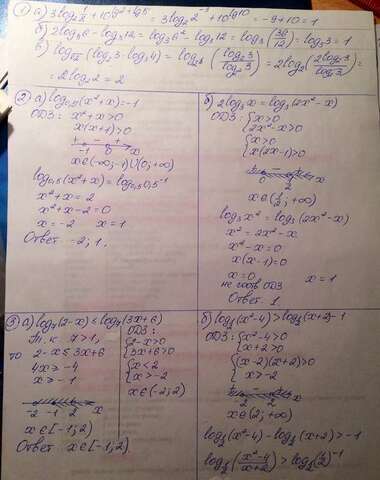 ① а) 3log₂ 1/2 + 10^(lg2+lg5) = 3log₂2⁻³ + 10^(lg10) = -9+10=1
б) 2log₃6 - log₃12 = log₃6² - log₃12 = log₃(36/12) = log₃3 = 1
в) log√2 (log₂3·log₃4) = log√2 (log₂3 / ) = 2log₂(2log₂3 / log₂3) =
= 2log₂2 = 2
② а) log₀,₅(x²+x) = -1
ОДЗ: x²+x>0
x(x+1)>0
+ - +
-1 0 x
x∈(-∞;-1)∪(0;+∞)
log₀,₅(x²+x) = log₀,₅0,5⁻¹
x²+x=2
x²+x-2=0
x=-2 x=1
Ответ -2; 1.
б) 2log₃x = log₃(2x²-x)
ОДЗ: {x>0
{2x²-x>0
{x>0
{x(2x-1)>0
0 1/2 x
x∈(1/2;+∞)
log₃x² = log₃(2x²-x)
x²=2x²-x
x²-x=0
x(x-1)=0
x=0 x=1
не удовл ОДЗ
Ответ 1
③ а) log₇(2-x) ≤ log₇(3x+6)
Т.к. 7>1,
то 2-x≤3x+6
4x≥-4
x≥-1
-2 -1 2 x
x∈[-1;2)
Ответ x∈[-1;2).
ОДЗ:
{2-x>0
{3x+6>0
{x<2
{x>-2
x∈(-2;2)
б) log½(x²-4) > log½(x+2)-1
ОДЗ: {x²-4>0
{x+2>0
{(x-2)(x+2)>0
{x>-2
-2 2 x
x∈(2;+∞)
log½(x²-4) - log½(x+2) > -1
log½((x²-4)/(x+2)) > log½(1/2)⁻¹